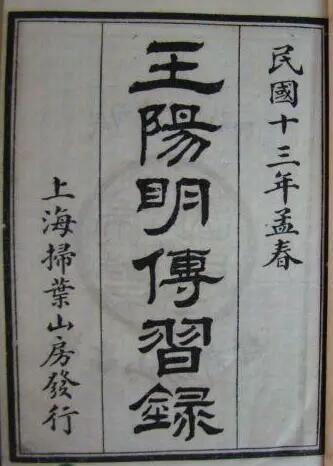 民國十三年孟春
王陽明傳習錄
上海掃葉山房發行